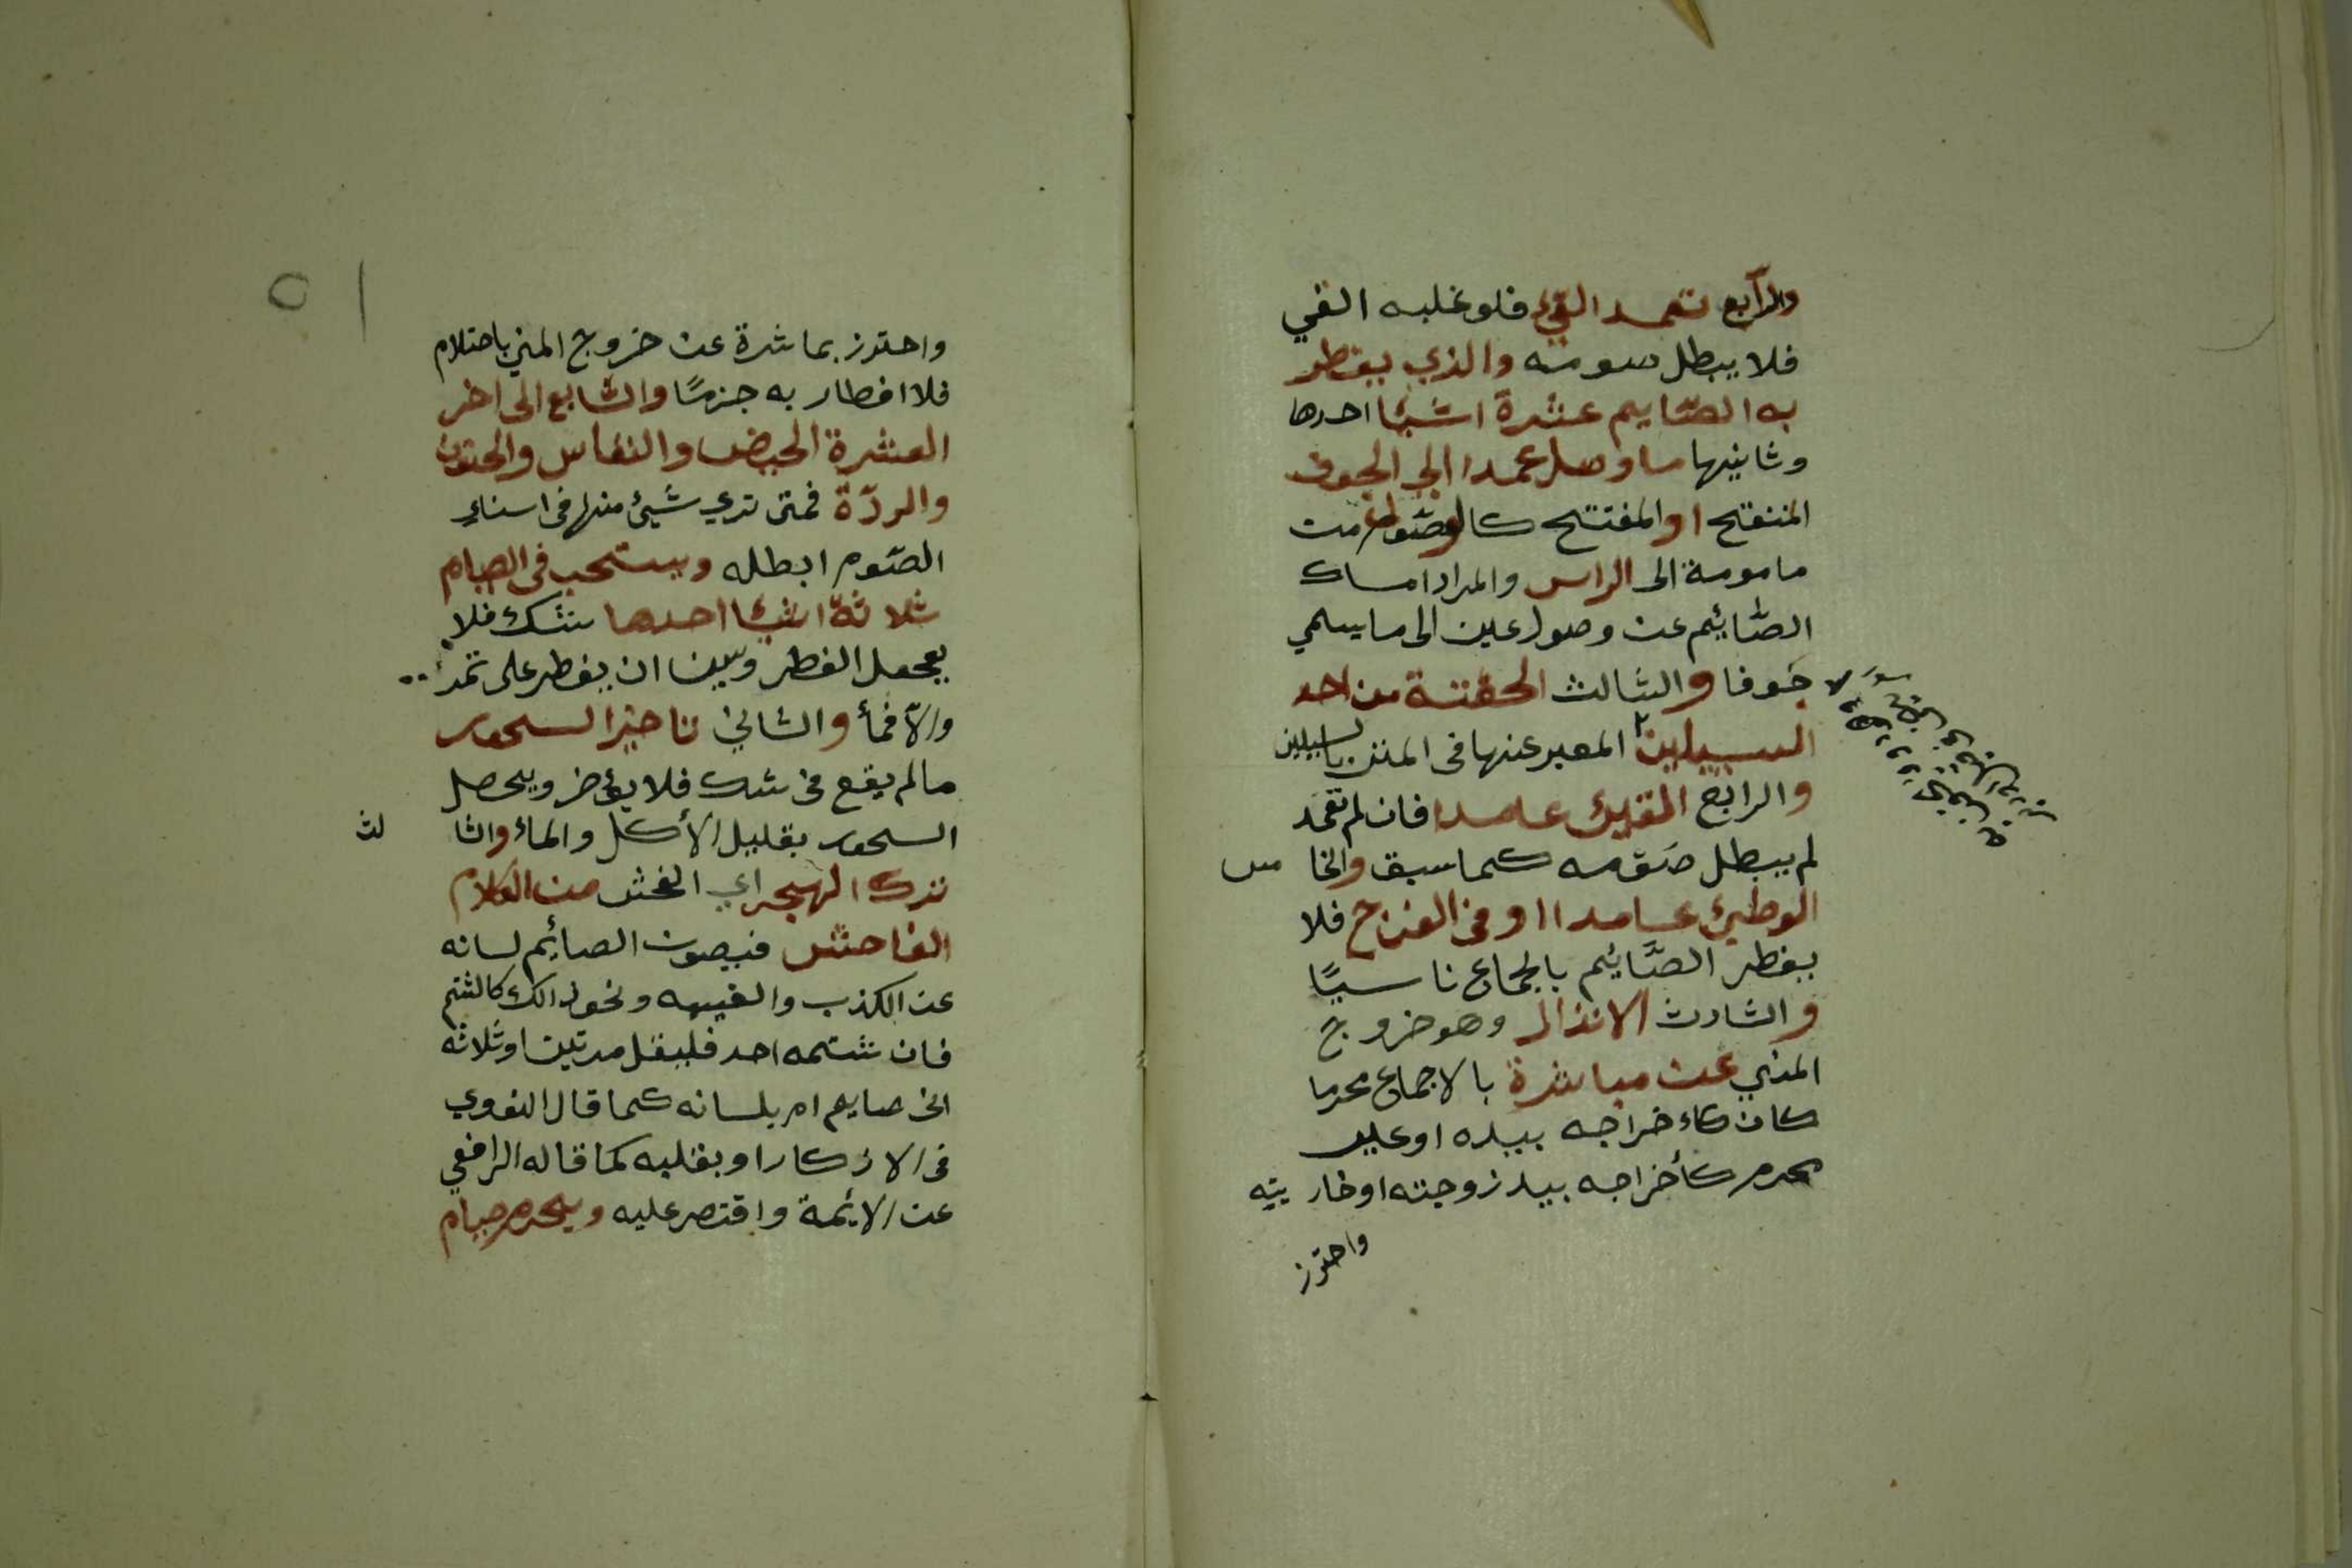 والرابع تعمد القيء فلو غلبه القي
فلا يبطل صومه والذي يفطر
به الصّايم عشرة اشيئا احدها
وثانيها ما وصل عمدا الي الجوف
المنفتح او المفتتح كالوصول من
مامومة الى الراس والمراد امساك
الصّائيم عن وصول عين الى ما يسمي
جَوفا والثالث الحقنة من احد
السبيلين المعبر عنها في المتن بالسبيلين
والرابع القيئ عامدا فان لم تعمد
لم يبطل صَومه كما سبق والخا مس
الوطيئ عامدا او في الفرج فلا
يفطر الصَّائيم بالجماع ناسيًا
والسادث الانزال وهو خروج
المني عن مباشرة بالاجماع محرما
كان كاءخراجه بيده او غير
محرم كأخراجه بيد زوجته او خار يته
واحترز
واحترز بماشرة عن خروج المني باحتلام
فلا افطار به جزمًا والسّابع الى اخر
العشرة الحيض والنفاس والجنون
والردّة فمتى تري شَيئ منها في اسناءِ
الصّوم ابطله ويستحب في الصيام
ثلاثة اشيئا احدها شك فلا
يعجعل الفطر ويسن ان يفطر على تمر
والاّ فمأ والثاني تاخير السحور
ما لم يقع في شك فلا يؤخر ويحصل
السحور بقليل الأكل والماء والثا لث
ترك الهجر اي الفحش من الكلام
الفاحش فيصون الصائيم لسانه
عن الكذب والغيبه ونحو ذالك كالشتم
فان شتمه احد فليقل مرتين او ثلاثه
اني صايم ام بلسانه كما قال النووي
في الاذكار او بقلبه كما قاله الرافعي
عن الائمة واقتصر عليه ويحرم صيام